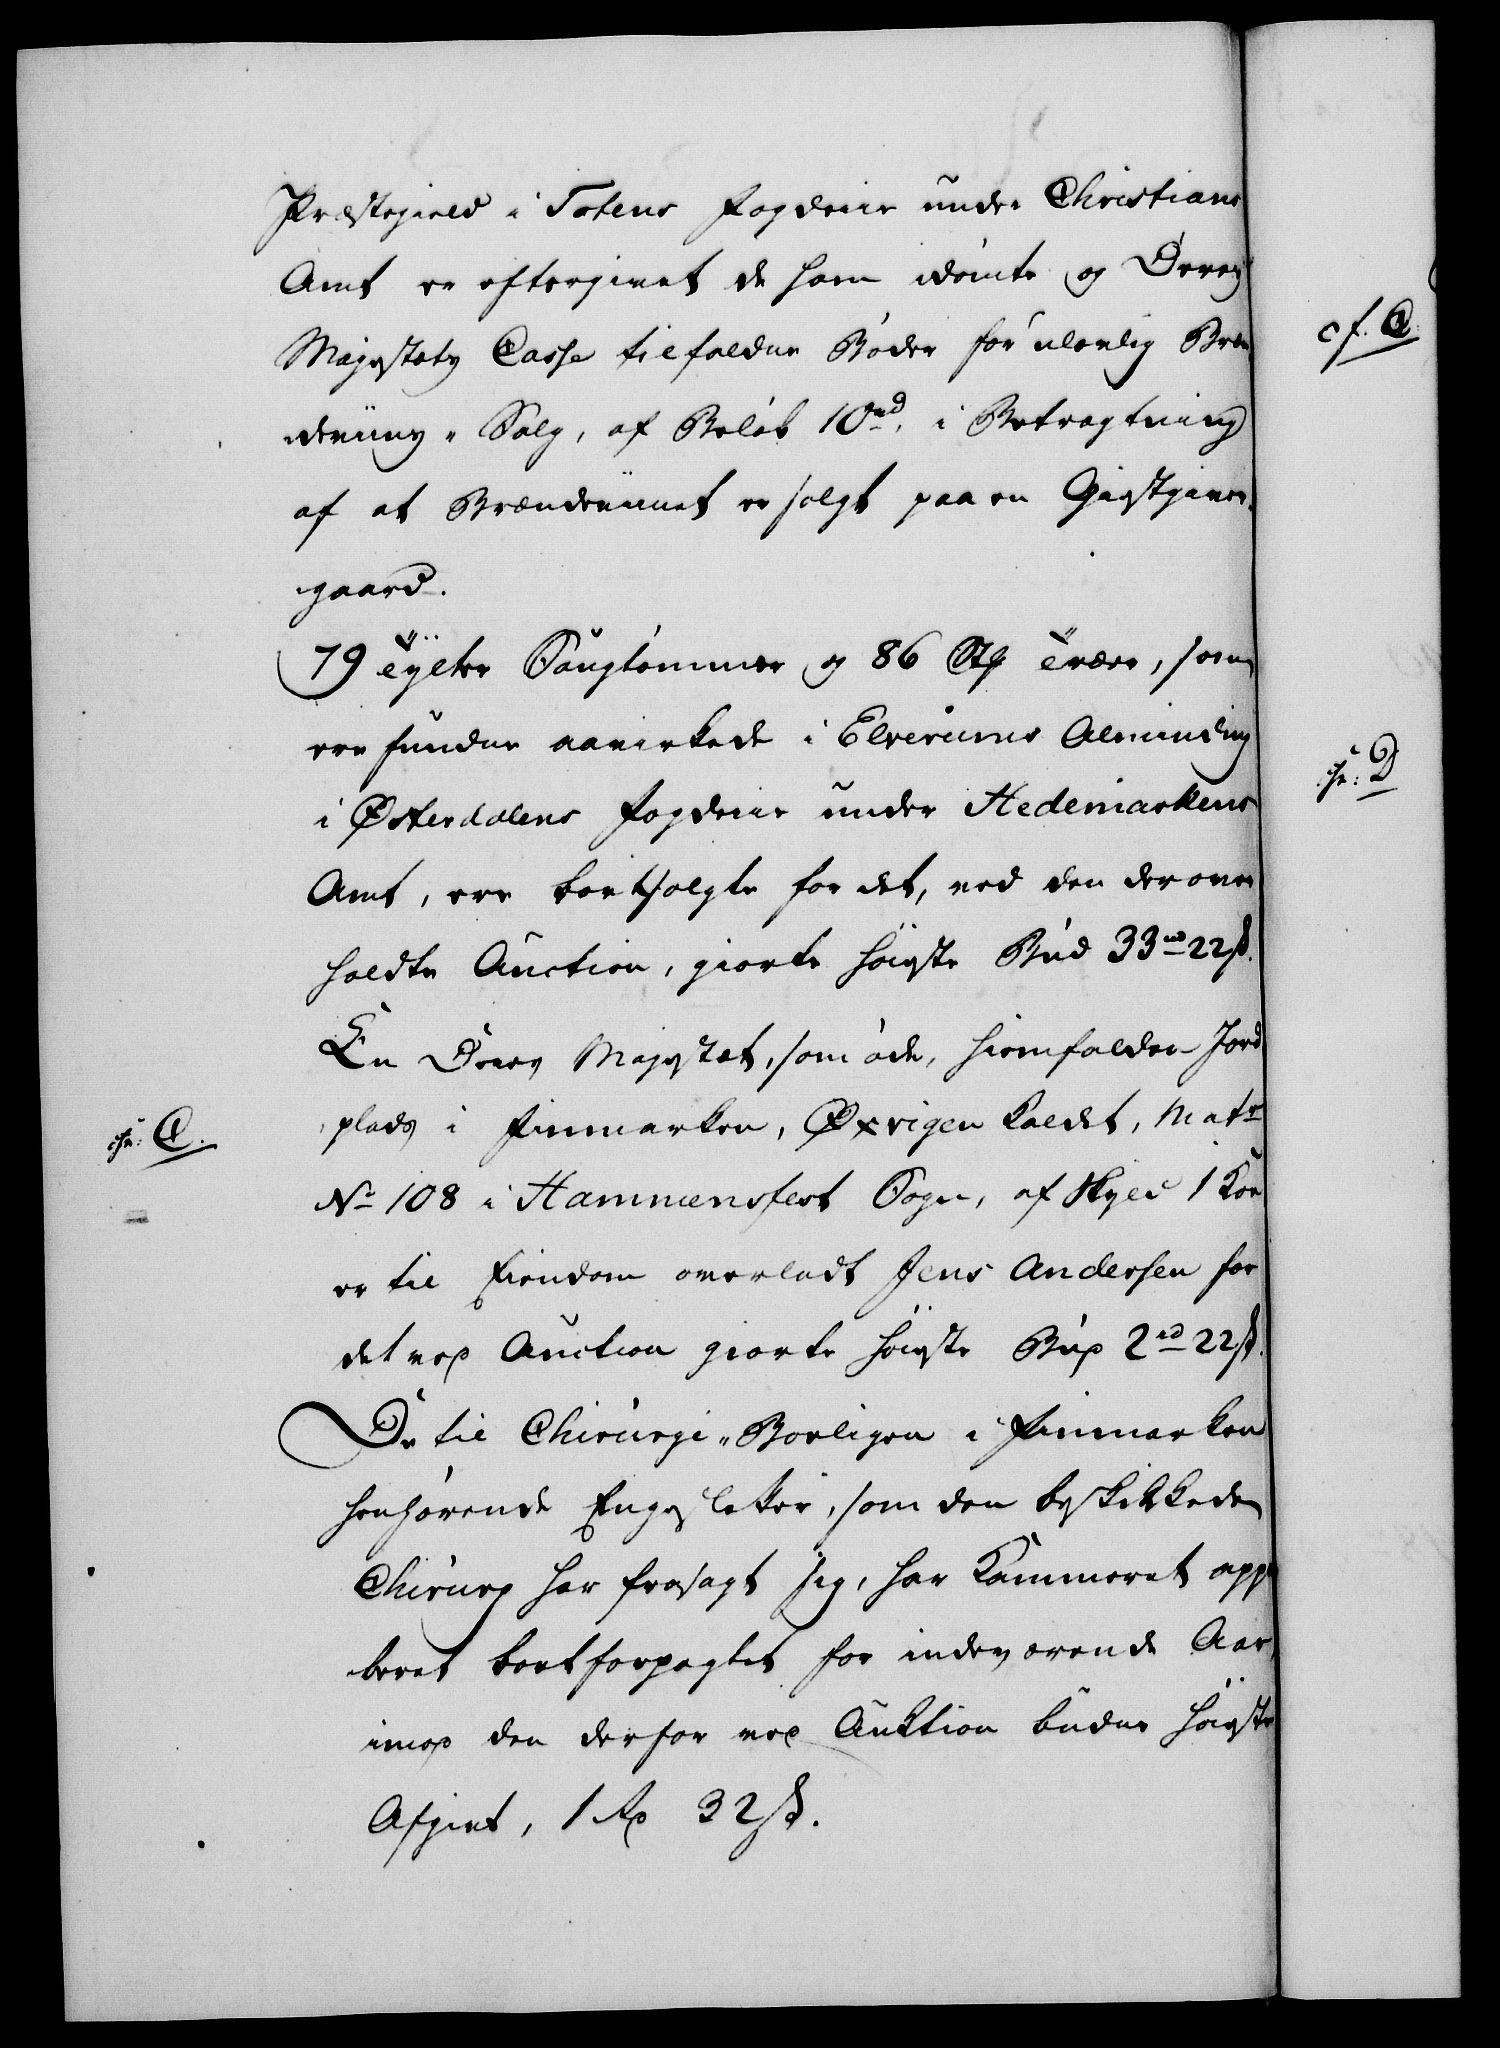 Præstegield i Totens Fogderie under Christians
Amt er eftergivet de ham idømte og Deres
Majestæts Casse tilfaldne Bøder for ulovlig Bræn
deviins Salg, af Beløb 10 rd, i Betragtning
af at Brændeviinet er solgt paa en Giæstgiver-
gaard.
79 Tylter Saugtømmer og 86 Stk Træer, som
ere fundne aavirkede i Elverums Alminding
i Østerdalens Fogderie under Hedemarkens
Amt, ere bortsolgte for det, ved den derover
holdte Auction, giorte høieste Bud 33 rd 22 s.
En Deres Majestæt, som øde, hiemfalden Jord
plads i Finmarken, Øxvigen kaldet, Matr
No 108 i Hammersfest Sogn, af Skyld 1 Koe
er til Eiendom overladt Jens Andersen for
det ved Auction giorte høieste Bud 2 rd 22 s.
De til Chirurgi-Boeligen i Finmarken
henhørende Engesletter, som den beskikkede
Chirurg har frasagt sig, har Kammeret app
beret bortforpagtet for indeværende Aar,
imod den derfor ved Auktion budne høieste
Afgivt, 1 Rd 32 s.
cfr: C.
cf. C.
cfr: D